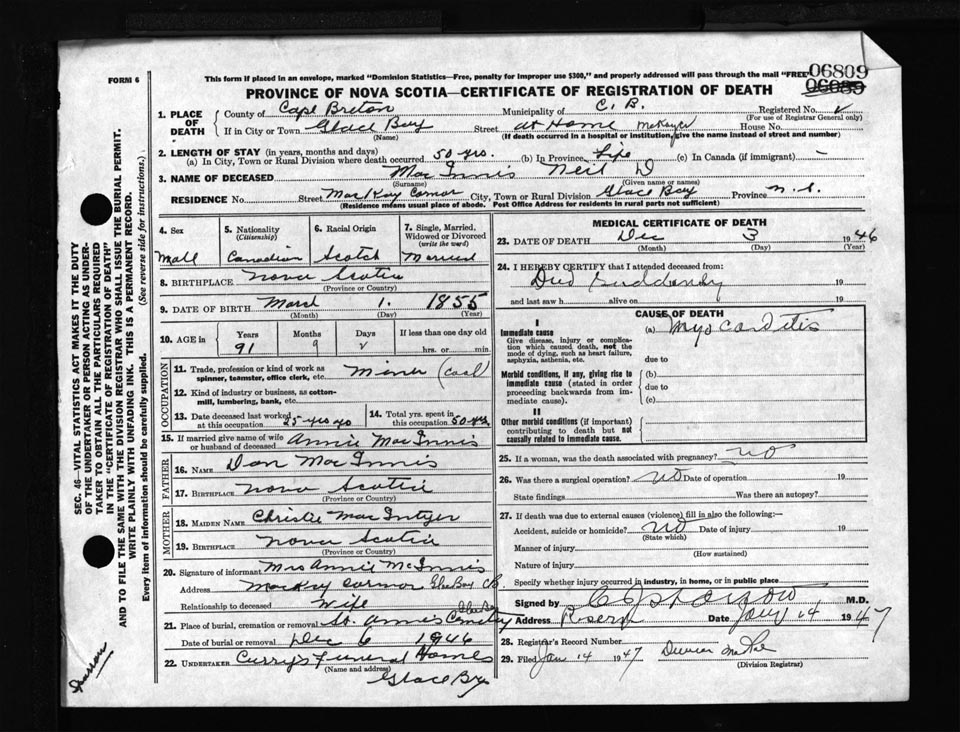 FORM 6
This form if placed in an envelope, marked "Dominion Statistics—Free, penalty for improper use $300," and properly addressed will pass through the mail "FREE"
06809
06089
PROVINCE OF NOVA SCOTIA—CERTIFICATE OF REGISTRATION OF DEATH
1. PLACE OF DEATH
County of Cape Breton Municipality of C. B. Registered No.
(For use of Registrar General only)
If in City or Town Glace Bay Street at Home House No.
(Name) (If death occurred in a hospital or institution, give the name instead of street and number)
2. LENGTH OF STAY (in years, months and days)
(a) In City, Town or Rural Division where death occurred 50 yrs. (b) In Province Life (c) In Canada (if immigrant) –
3. NAME OF DECEASED Mac Innis Neil D
(Surname) (Given name or names)
RESIDENCE No. Street MacKay Cornor City, Town or Rural Division Glace Bay Province N. S.
(Residence means usual place of abode. Post Office Address for residents in rural parts not sufficient)
4. Sex
Male
5. Nationality (Citizenship)
Canadian
6. Racial Origin
Scotch
7. Single, Married, Widowed or Divorced (write the word)
Married
8. BIRTHPLACE Nova Scotia
(Province or Country)
9. DATE OF BIRTH March 1. 1855
(Month) (Day) (Year)
10. AGE in Years Months Days If less than one day old
91 9 hrs. or min.
OCCUPATION
11. Trade, profession or kind of work as spinner, teamster, office clerk, etc. Miner (Coal)
12. Kind of industry or business, as cotton-mill, lumbering, bank, etc.
13. Date deceased last worked at this occupation 25 yrs ago
14. Total yrs. spent in this occupation 50 yrs
15. If married give name of wife or husband of deceased Annie Mac Innis
FATHER
16. NAME Dan Mac Innis
17. BIRTHPLACE Nova Scotia
(Province or Country)
MOTHER
18. MAIDEN NAME Christie Mac Intyer
19. BIRTHPLACE Nova Scotia
(Province or Country)
20. Signature of informant Mrs Annie McInnis
Address MacKay Cornor Glace Bay CB
Relationship to deceased Wife
21. Place of burial, cremation or removal St. Annes Cemetery Glace Bay
Date of burial or removal Dec 6 1946
22. UNDERTAKER Curry's Funeral Homes
(Name and address)
Glace Bay
MEDICAL CERTIFICATE OF DEATH
23. DATE OF DEATH Dec 3 1946
(Month) (Day) (Year)
24. I HEREBY CERTIFY that I attended deceased from:
Died Suddenly 19
and last saw h alive on 19
CAUSE OF DEATH
I
Immediate cause (a) Myocarditis
Give disease, injury or complication which caused death, not the mode of dying, such as heart failure, asphyxia, asthenia, etc.
due to
Morbid conditions, if any, giving rise to immediate cause (stated in order proceeding backwards from immediate cause).
(b)
due to
(c)
II
Other morbid conditions (if important) contributing to death but not causally related to immediate cause.
25. If a woman, was the death associated with pregnancy? NO
26. Was there a surgical operation? NO Date of operation 19
State findings Was there an autopsy?
27. If death was due to external causes (violence) fill in also the following:—
Accident, suicide or homicide? NO Date of injury 19
(State which)
Manner of injury
(How sustained)
Nature of injury
Specify whether injury occurred in industry, in home, or in public place
Signed by M.D.
Address Reserve Date Jany 14 1947
28. Registrar's Record Number
29. Filed Jan 14 1947
(Division Registrar)
SEC. 46—VITAL STATISTICS ACT MAKES IT THE DUTY
OF THE UNDERTAKER OR PERSON ACTING AS UNDER-
TAKER TO OBTAIN ALL THE PARTICULARS REQUIRED
IN THE "CERTIFICATE OF REGISTRATION OF DEATH"
AND TO FILE THE SAME WITH THE DIVISION REGISTRAR WHO SHALL ISSUE THE BURIAL PERMIT.
WRITE PLAINLY WITH UNFADING INK. THIS IS A PERMANENT RECORD.
Every item of information should be carefully supplied. (See reverse side for instructions.)